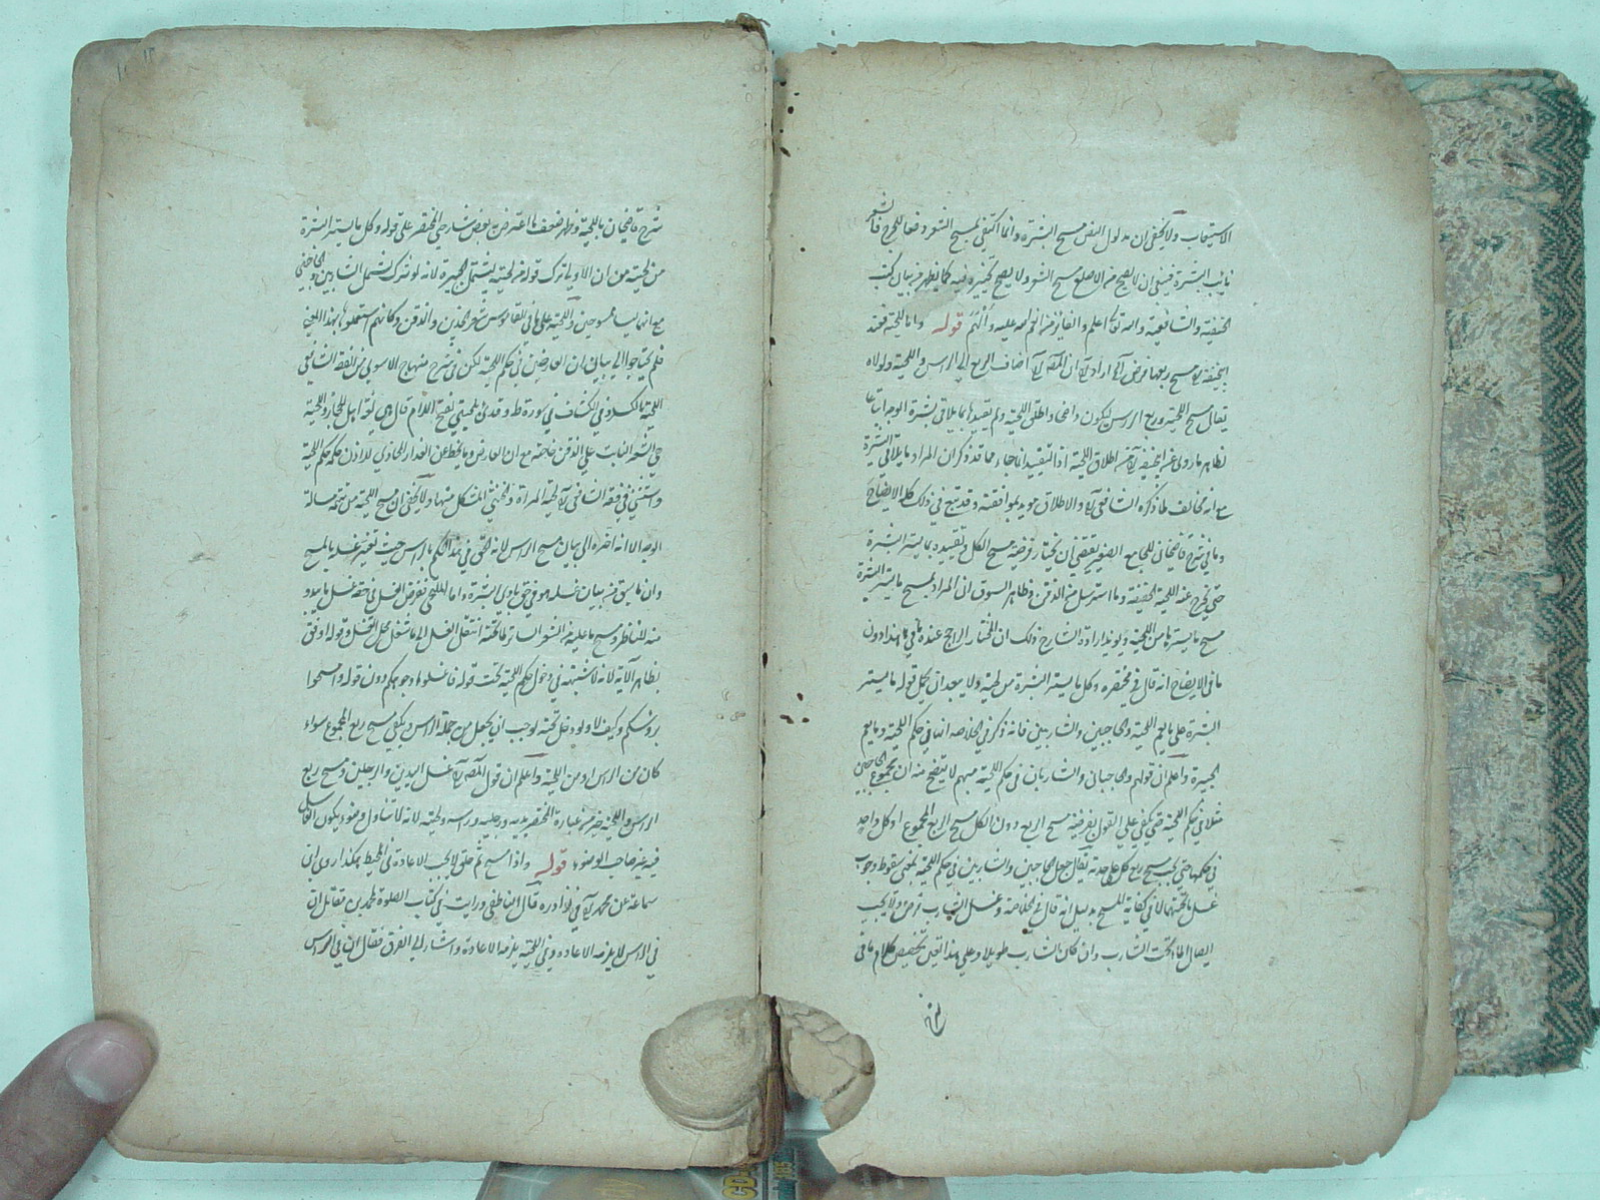 الاستيعاب ولا يخفى ان مدلول النص مسح البشرة وانما اكتفى بمسح الشعر دفعا للحرج فالشعر
نايب البشرة فينبغى ان لا يصح من الاصلع مسح الشعر ولا يصح تخييره فيه كما يظهر من بيان كتب
الحنفية والشافعية والله تعالى اعلم قوله واما اللحية فعند
ابى حنيفة مسح ربعها فرض اضاف الربع الى الراس واللحية ولولاه
يقال مسح اللحية وربع الراس ليكون واطلق اللحية ولم يقيدها بما يلاقى بشرة الوجه اتباعا
لظاهر ما روى عن ابى حنيفة من اطلاق اللحية اذ التقييد مما قد ذكر ان المراد ما يلاقى البشرة
مع انه مخالف لما ذكره الشافعى والاطلاق مويد بموافقته وقد تبع فى ذلك كلام الايضاح
وما فى شرح قاضيخان للجامع الصغير يقتضى ان يختار فرضية مسح الكل وتقييده بما يستر البشرة
حتى يخرج عنه اللحية الخفيفة وما استرسل من الذقن وظاهر السوق ان المراد بمسح ما يستر البشرة
مسح ما يسترها من اللحية ويويد ارادة الشارح ذلك ان المختار الراجح عنده ما فى هذا دون
ما فى الايضاح انه قال فى مختصره وكل ما يستر البشرة من لحيته ولا يبعد ان يحمل قوله ما يستر
البشرة على ما يعم اللحية والحاجبين والشاربين فانه ذكر فى الخلاصة انها فى حكم اللحية وما يعم
الجبيرة واعلم ان قولهم والحاجبان والشاربان فى حكم اللحية مبهم لا يتضح منه ان مجموع الحاجبين
مثلا فى حكم اللحية حتى يكفى على القول بفرضية مسح الربع دون الكل مسح الربع المجموع او كل واحد
فى حكمها حتى يجب مسح ربع كل على حدة جعل الحاجبين والشاربين فى حكم اللحية يعنى سقوط وجوب
غسل ما تحتهما لا فى كفاية المسح بدليل انه قال فى الخلاصة وغسل الشارب فرض ولا يجب
ايصال الماء تحت الشارب وان كان الشارب طويلا وعلى هذا تعين تخصيص كلام ما فى
شرح قاضيخان باللحية وظهر ضعف ما اعترض به بعض شارحى المختصر على قوله وكل ما يستر البشرة
من لحيته من ان الاولى ترك قوله من لحيته ليشتمل الجبيرة لانه لو ترك لشمل الشاربين والحاجبين
مع انهما ليسا ممسوحين واللحية على ما فى القاموس شعر الخدين والذقن وكانهم استعملوها بهذا المعنى
فلم يحتاجوا الى بيان ان العارضين فى حكم اللحية لكن فى شرح منهاج الاصولى من الفقه الشافعى
اللحية بالكسر وفى الكشاف فى سورة طه وقد قرئ بلحيتى بفتح اللام قال هى لغة اهل الحجاز واللحية
هى الشعر النابت على الذقن خاصة مع ان العارض وما ينحط عن العذار المحاذى للاذن حكمه حكم اللحية
واستثنى فى فقه الشافعى لحية المراة والخنثى المشكل منها ولا يخفى ان مسح اللحية من تتمة مسالة
الوجه الا انه اخره الى بيان مسح الراس لانه التحق فى هذا الحكم بالراس حيث تغير غسله بالمسح
وان ما سبق من بيان غسله هو فى حق بادى البشرة واما الملتحى ففرض الغسل فى حقه غسل ما يبدو
منه للناظر ومسح ما عليه من الشعر الساتر لما تحته انتقل الغسل الى ما شغل محل الغسل وقوله اوفق
بظاهر الآية لانه لا شبهة فى دخول حكم اللحية تحت قوله فاغسلوا وجوهكم دون قوله وامسحوا
برءوسكم وكيف لا ولو دخل تحته لوجب ان يجعل من جملة الراس ويكفى مسح ربع المجموع سواء
كان من الراس او من اللحية واعلم ان قول غسل اليدين والرجلين ومسح ربع
الراس واللحية خير من عبارة المختصر يديه ورجليه وراسه ولحيته لانه لا يتناول وضوء يكون الغاسل
فيه غير صاحب الوضوء قوله واذا مسح ثم حلق لا يجب الاعادة فى المحيط هكذا روى ابن
سماعة عن محمد فى نوادره قال الناطفى ورايت فى كتاب الصلوة لمحمد بن مقاتل ان
فى الراس لا يلزمه الاعادة وفى اللحية يلزمه الاعادة واشار الى الفرق فقال ان فى الراس